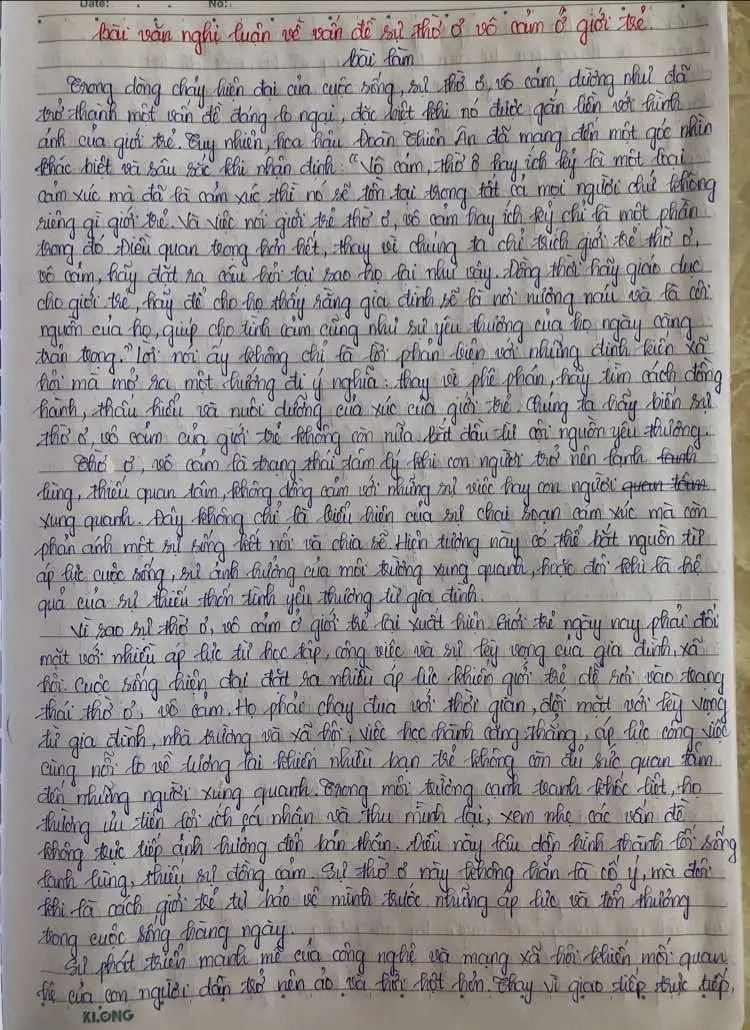 Date: No:
bài văn nghị luận về vấn đề sự thờ ơ vô cảm ở giới trẻ.
bài làm
Trong dòng chảy hiện đại của cuộc sống, sự thờ ơ, vô cảm dường như đã
trở thành một vấn đề đáng lo ngại, đặc biệt khi nó được gắn liền với hình
ảnh của giới trẻ. Tuy nhiên, hoa hậu Đoàn Thiên Ân đã mang đến một góc nhìn
khác biệt và sâu sắc khi nhận định: "Vô cảm, thờ ơ hay ích kỷ là một loại
cảm xúc mà đã là cảm xúc thì nó sẽ tồn tại trong tất cả mọi người chứ không
riêng gì giới trẻ. Và việc nói giới trẻ thờ ơ, vô cảm hay ích kỷ chỉ là một phần
trong đó. Điều quan trọng hơn hết, thay vì chúng ta chỉ trích giới trẻ thờ ơ,
vô cảm, hãy đặt ra câu hỏi tại sao họ lại như vậy. Đồng thời hãy giáo dục
cho giới trẻ, hãy để cho họ thấy rằng gia đình sẽ là nơi nương náu và là cội
nguồn của họ, giúp cho tình cảm cũng như sự yêu thương của họ ngày càng
trân trọng." Lời nói ấy không chỉ là lời phản biện với những định kiến xã
hội mà mở ra một hướng đi ý nghĩa: thay vì phê phán, hãy tìm cách đồng
hành, thấu hiểu và nuôi dưỡng của xúc của giới trẻ. Chúng ta hãy biến sự
thờ ơ, vô cảm của giới trẻ không còn nữa bắt đầu từ cội nguồn yêu thương.
Thờ ơ, vô cảm là trạng thái tâm lý khi con người trở nên lạnh lạnh
lùng, thiếu quan tâm, không đồng cảm với những sự việc hay con người quan tâm
xung quanh. Đây không chỉ là biểu hiện của sự chai sạn cảm xúc mà còn
phản ánh một sự sống kết nối và chia sẻ. Hiện tượng này có thể bắt nguồn từ
áp lực cuộc sống, sự ảnh hưởng của môi trường xung quanh, hoặc đôi khi là hệ
quả của sự thiếu thốn tình yêu thương từ gia đình.
Vì sao sự thờ ơ, vô cảm ở giới trẻ lại xuất hiện. Giới trẻ ngày nay phải đối
mặt với nhiều áp lực từ học tập, công việc và sự kỳ vọng của gia đình, xã
hội. Cuộc sống hiện đại đặt ra nhiều áp lực khiến giới trẻ dễ rơi vào trạng
thái thờ ơ, vô cảm. Họ phải chạy đua với thời gian, đối mặt với kỳ vọng
từ gia đình, nhà trường và xã hội, việc học hành căng thẳng, áp lực công việc
cùng nỗi lo về tương lai khiến nhiều bạn trẻ không còn đủ sức quan tâm
đến những người xung quanh. Trong môi trường cạnh tranh khốc liệt, họ
thường ưu tiên lợi ích cá nhân và thu mình lại, xem nhẹ các vấn đề
không trực tiếp ảnh hưởng đến bản thân. Điều này lâu dần hình thành lối sống
lạnh lùng, thiếu sự đồng cảm. Sự thờ ơ này không hẳn là cố ý, mà đôi
khi là cách giới trẻ tự bảo vệ mình trước những áp lực và tổn thương
trong cuộc sống hàng ngày.
Sự phát triển mạnh mẽ của công nghệ và mạng xã hội khiến mối quan
hệ của con người dần trở nên ảo và hời hợt hơn. Thay vì giao tiếp trực tiếp,
KLONG